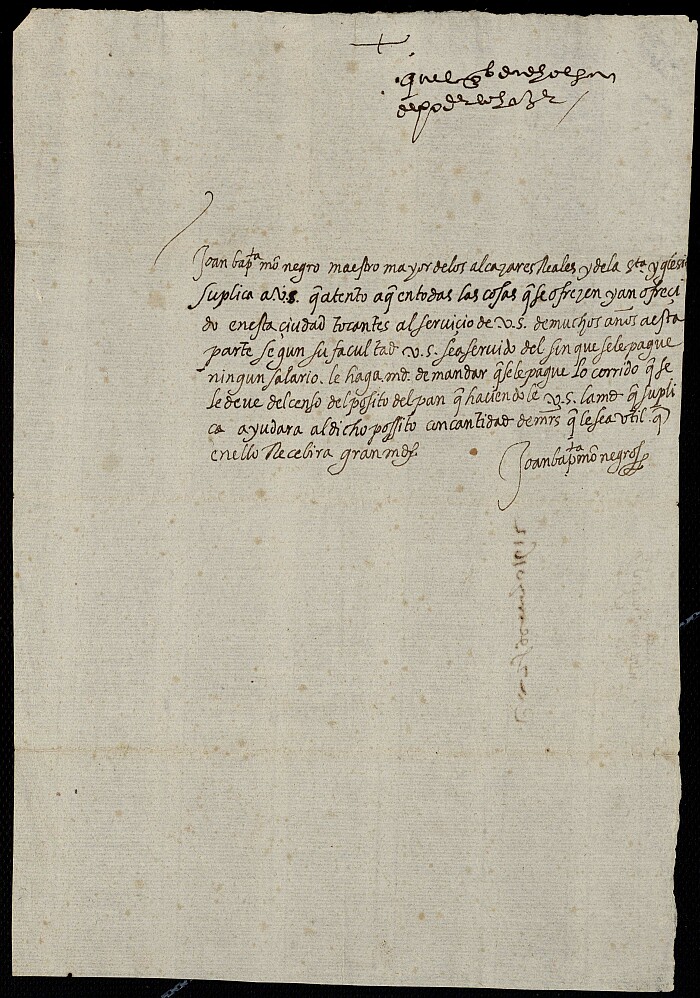 Joan bapta mō negro maestro mayor de los alcazares Reales y de la Sta yglesia
suplica a V.S. q̄ atento a q̄ en todas las cosas q̄ se ofrezen y an ofreci
do en esta ciudad tocantes al servicio de V.S. de muchos años a esta
parte segun su facultad V.S. sea servido del sin que se le pague
ningun salario. le haga md. de mandar q̄ se le pague lo corrido q̄ se
le deve del censo del posito del pan q̄ haciendole V.S. la md q̄ supli
ca ayudara al dicho possito con cantidad de mrs q̄ le sea util. q̄
en ello Recebira gran md.
Joan bapta mō negro